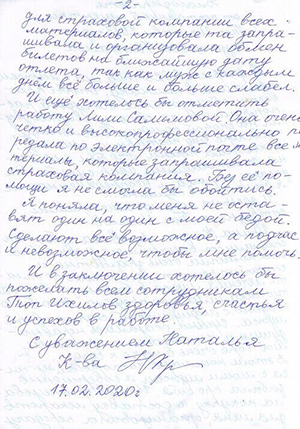 -2-
для страховой компании всех
материалов, которые та запра-
шивала и организовала обмен
билетов на ближайшую дату
отлета, так как муж с каждым
днём всё больше и больше слабел.
И ещё хотелось бы отметить
работу Лили Салимовой. Она очень
четко и высокопрофессионально п
редала по электронной почте все м
териалы, которые запрашивала
страховая компания. Без её по-
мощи я не смогла бы обойтись.
Я поняла, что меня не оста-
вят один на один с моей бедой.
Сделают всё возможное, а подчас
и невозможное, чтобы мне помочь.
И в заключении хотелось бы
пожелать всем сотрудникам
Топ Ихилов здоровья, счастья
и успехов в работе
С уважением Наталья
К-ва
17.02.2020г